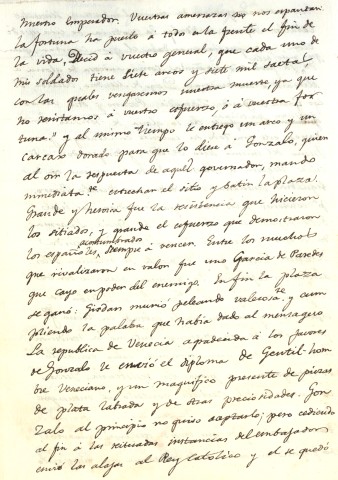 nuestro Emperador. Vuestras amenazas no nos espantan
la fortuna ha puesto à todo en la frente el fin de
la vida, Decid à vuestro general, que cada uno de
mis soldados tiene siete arcos y siete mil saetas,
con las quales vengaremos nuestra muerte, ya que
no resistamos à vuestro esfuerzo, ò à vuestra for
tuna." y al mismo tiempo le entregó un arco y un
carcax dorado para que lo diese à Gonzalo, quien
al oir la respuesta de aquel governador, mandó
inmediatamte estrechar el sitio y batir la plaza.
Grande y heroica fue la resistencia que hicieron
los sitiados, y grande el esfuerzo que demostraron
los españoles, acostumbrados siempre à vencer. Entre los muchos
que rivalizaron en valor fue uno Garcia de Paredes
que cayo en poder del enemigo. En fin la plaza
se ganó: Gisdan murió peleando valerosamte, y cum
pliendo la palabra que habia dado al mensagero
La republica de Venecia agradecida à los favores
de Gonzalo le envió el diploma de Gentil-hom
bre Veneciano, y un magnifico presente de piezas
de plata labrada y de otras preciosidades. Gon
zalo al principio no quiso aceptarlo; pero cediendo
al fin à las reiteradas instancias del embajador
envió las alajas al Rey Catolico y el se quedó